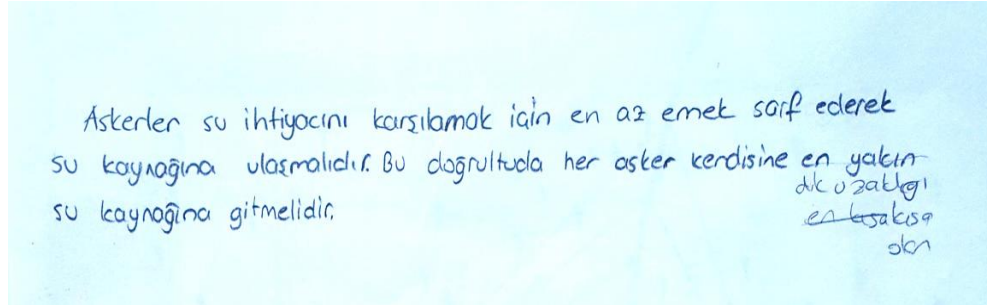 Askerler su ihtiyacını karşılamak için en az emek sarf ederek
su kaynağına ulaşmalıdır. Bu doğrultuda her asker kendisine en yakın
dik uzaklığı
su kaynağına gitmelidir.
en kısa kısa
olan